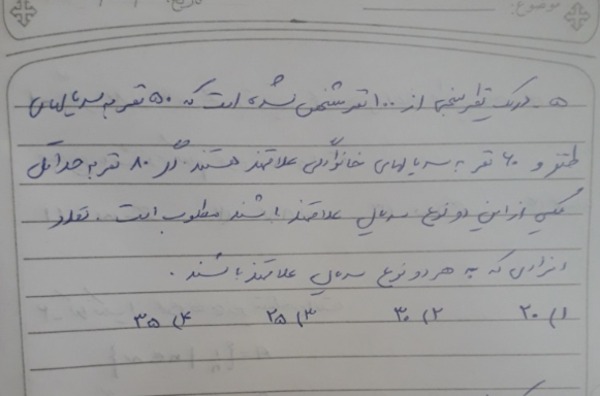 موضوع: تاریخ:
۵ - در یک نظر سنجی از ۱۰۰ نفر مشخص شده است که ۵۰ نفر به سریالهای
طنز و ۶۰ نفر به سریالهای خانوادگی علاقمند هستند. اگر ۸۰ نفر به حداقل
یکی از این دو نوع سریال علاقمند باشند مطلوب است. تعداد
افرادی که به هر دو نوع سریال علاقمند باشند.
۱) ۲۰ ۲) ۳۰ ۳) ۲۵ ۴) ۳۵